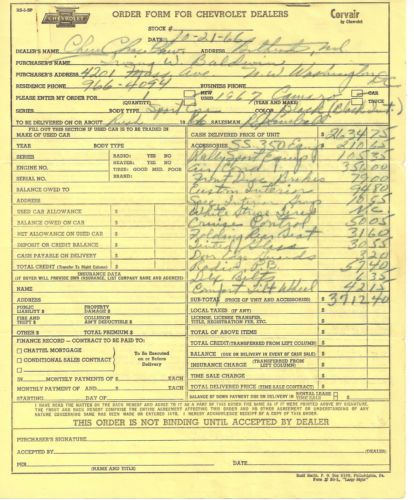 RS-1-SP
CHEVROLET
ORDER FORM FOR CHEVROLET DEALERS
Corvair
by Chevrolet
STOCK #
DATE 10-21-66
DEALER'S NAME ADDRESS
PURCHASER'S NAME Irving W. Baldwin
PURCHASER'S ADDRESS 4201 Mass Ave N.W. Washington DC
RESIDENCE PHONE 966-4094 BUSINESS PHONE
PLEASE ENTER MY ORDER FOR 1 NEW USED 1967 Camaro CAR TRUCK
(QUANTITY) (YEAR AND MAKE)
SERIES BODY TYPE Sport COLOR Black
TO BE DELIVERED ON OR ABOUT SALESMAN
FILL OUT THIS SECTION IF USED CAR IS TO BE TRADED IN
MAKE OF USED CAR CASH DELIVERED PRICE OF UNIT $ 2634 75
YEAR BODY TYPE ACCESSORIES SS 350 Equip 210 65
SERIES RADIO: YES NO Rally Sport Equip 105 35
HEATER: YES NO
ENGINE NO. TIRES: GOOD MED. POOR Air Cond 356 00
SERIAL NO. BRAND Front Disc Brakes 79 00
BALANCE OWED TO Custom Interior 94 80
ADDRESS Spec Interior Group
USED CAR ALLOWANCE $ White Stripe Tires N/C
BALANCE OWED ON CAR $ Cruise Control 50 05
NET ALLOWANCE ON USED CAR $ Folding Rear Seat 31 60
DEPOSIT OR CREDIT BALANCE $ Tinted Glass 30 55
CASH PAYABLE ON DELIVERY $ Door Edge Guards 3 20
TOTAL CREDIT (Transfer To Right Column) $ Radio P.B. 57 40
INSURANCE DATA
(IF BUYER WILL PROVIDE OWN INSURANCE, LIST COMPANY NAME AND ADDRESS) Belts 6 35
NAME Comfort Tilt Wheel 42 15
ADDRESS SUB-TOTAL (PRICE OF UNIT AND ACCESSORIES) $ 3712 40
PUBLIC LIABILITY $ PROPERTY DAMAGE $ LOCAL TAXES (IF ANY)
FIRE AND THEFT $ COLLISION ANY DEDUCTIBLE $ LICENSE, LICENSE TRANSFER, TITLE, REGISTRATION FEE, ETC.
OTHER $ TOTAL PREMIUM $ TOTAL OF ABOVE ITEMS
FINANCE RECORD — CONTRACT TO BE PAID TO: TOTAL CREDIT (TRANSFERRED FROM LEFT COLUMN) $
CHATTEL MORTGAGE BALANCE (DUE ON DELIVERY IN EVENT OF CASH SALE) $
CONDITIONAL SALES CONTRACT To Be Executed on or Before Delivery INSURANCE CHARGE (TRANSFERRED FROM LEFT COLUMN) $
IN MONTHLY PAYMENTS OF $ EACH TIME SALE CHARGE $
MONTHLY PAYMENT OF AND $ EACH TOTAL DELIVERED PRICE (TIME SALE CONTRACT) $
STARTING DAY OF BALANCE OF DOWN PAYMENT DUE ON DELIVERY IN RENTAL LEASE TIME SALE $
I HAVE READ THE MATTER ON THE BACK HEREOF AND AGREE TO IT AS A PART OF THIS ORDER THE SAME AS IF IT WERE PRINTED ABOVE MY SIGNATURE. THE FRONT AND BACK HEREOF COMPRISE THE ENTIRE AGREEMENT AFFECTING THIS ORDER AND NO OTHER AGREEMENT OR UNDERSTANDING OF ANY NATURE CONCERNING SAME HAS BEEN MADE OR ENTERED INTO. I HEREBY ACKNOWLEDGE RECEIPT OF A COPY OF THIS ORDER.
THIS ORDER IS NOT BINDING UNTIL ACCEPTED BY DEALER
PURCHASER'S SIGNATURE
ACCEPTED BY (DEALER)
PER DATE
(NAME AND TITLE)